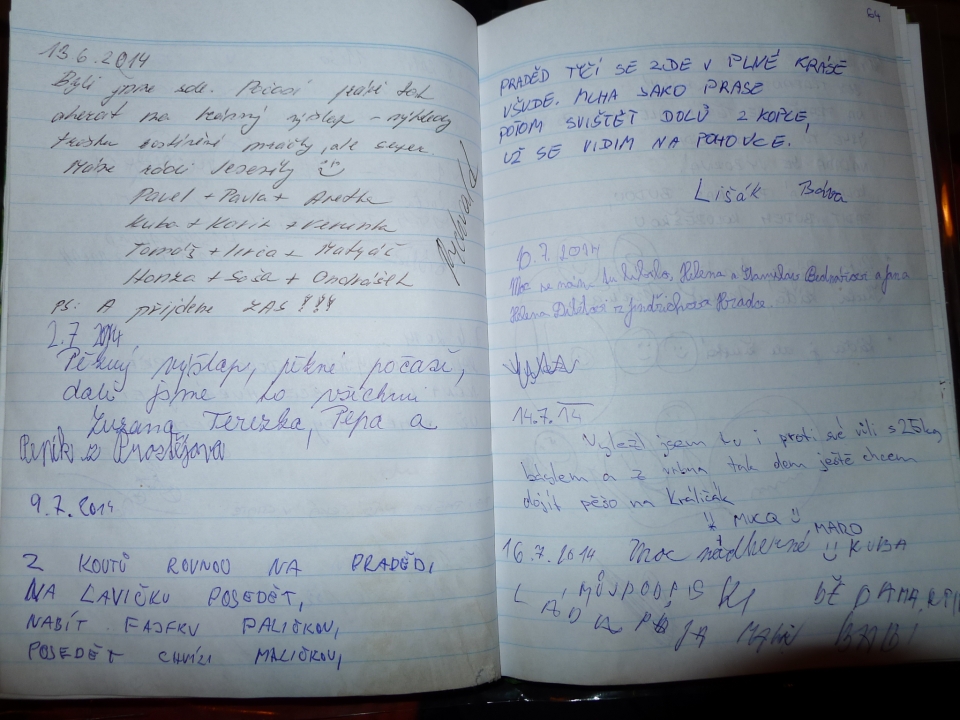 13.6.2014
Byli jsme zde. Počasí přálo tak
akorát na krásný výšlap - výhledy
trošku mráčky, ale super.
Máme rádi Jeseníky
Pavel + Pavla + Anetka
Kuba + + Verunka
Tomáš + + Matyáš
Honza + Soňa + Ondrášek
PS: A přijdeme ZAS !!!
Rychvald
2.7. 2014,
Pěkný výšlap, pěkné počasí,
dali jsme to všichni
Zuzana Terezka, Pepa a
Pepík z Prostějova
9.7.2014
Z KOUTŮ ROVNOU NA PRADĚD,
NA LAVIČKU POSEDĚT,
NABÍT FAJFKU PALIČKOU,
POSEDĚT CHVÍLI MALIČKOU,
64
PRADĚD TYČÍ SE ZDE V PLNÉ KRÁSE
VŠUDE. MLHA JAKO PRASE
POTOM SVIŠTĚT DOLŮ Z KOPCE,
UŽ SE VIDIM NA POHOVCE.
Lišák
10.7.2014
Moc se nám tu líbilo, Helena a Stanislav a
Helena z Jindřichova Hradce.
14.7.14
Vylezl jsem tu i proti své vůli s 25kg
báglem a z vrbna tak dem ještě chcem
dojít pěšo na Králičák
MUCA
MARO
16.7.2014 Moc nádherné KUBA
MŮJ PODPIS